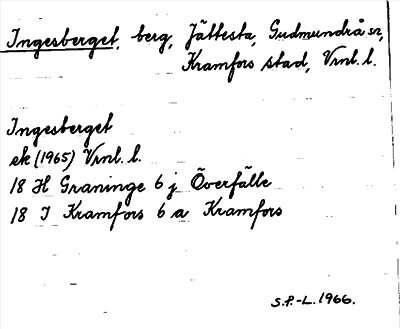 Ingesberget, berg, Jättesta, Gudmundrå sn,
Kramfors stad, Vnl. l.
Ingesberget
ek (1965) Vnl. l.
18 H Graninge 6 j Överfälle
18 I Kramfors 6 a Kramfors
S.P.-L. 1966.